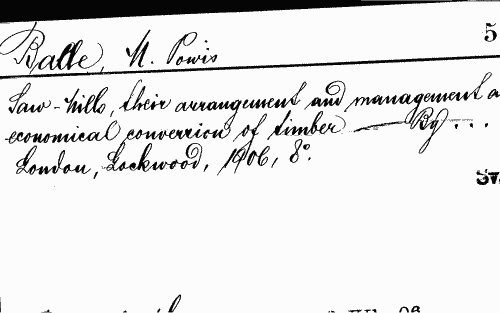 5
Balle, M. Powis
Saw-Mills, their arrangement and management a
economical conversion of timber — By ...
London, Lockwood, 1906, 8°.